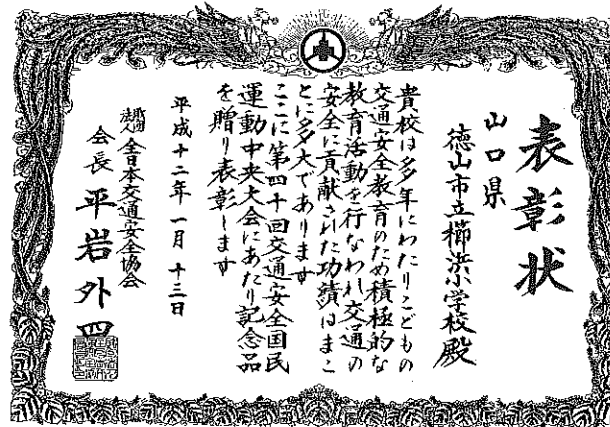 表彰状
山口県
徳山市立櫛浜小学校殿
貴校は多年にわたりこどもの
交通安全教育のため積極的な
教育活動を行なわれ交通の
安全に貢献された功績はまこ
とに多大であります
ここに第四十回交通安全国民
運動中央大会にあたり記念品
を贈り表彰します
平成十二年一月十三日
財団法人全日本交通安全協会
会長平岩外四